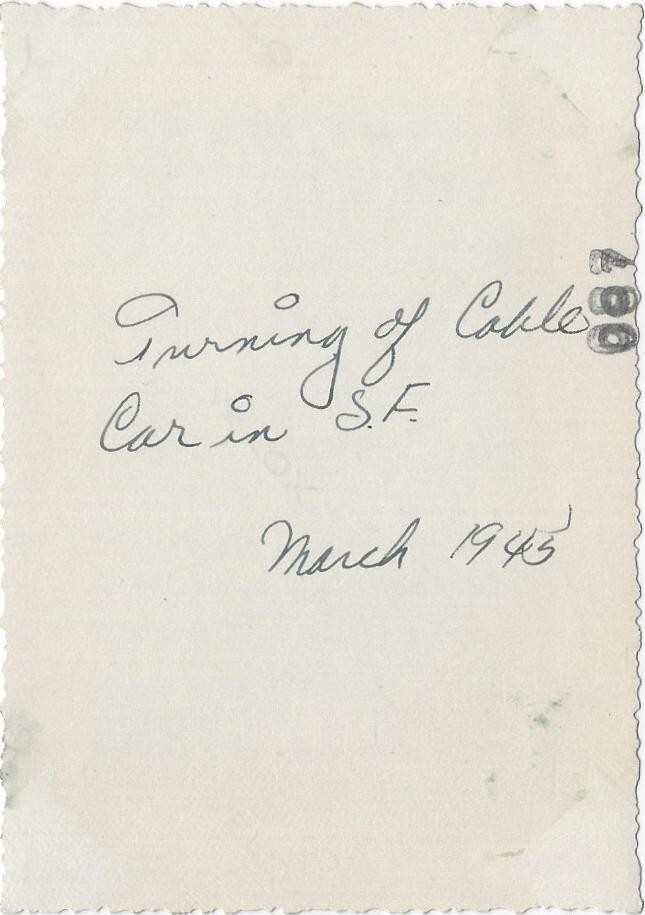 Turning of Cable
Car in S.F.
March 1945